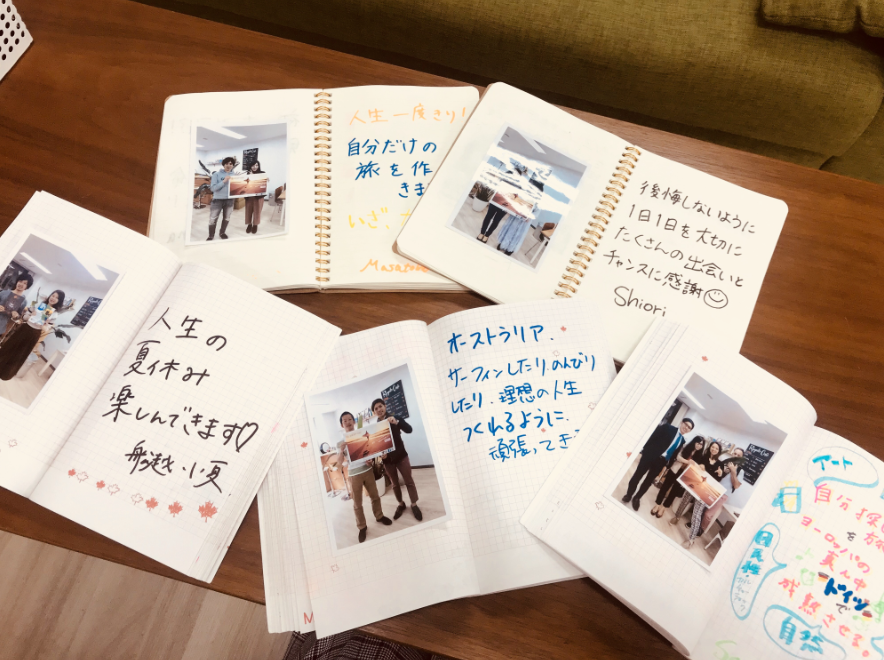 人生一度きり!
自分だけの
旅を作
きま
後悔しないように
1日1日を大切に
たくさんの出会いと
チャンスに感謝
Shiori
人生の
夏休み
楽しんできます♡
船越 小夏
オーストラリア.
サーフィンしたり.のんびり
したり.理想の人生
つくれるように.
頑張ってき
アート
自分
ヨーロッパの
真ん中
ドイツで
成熟させる。
自然